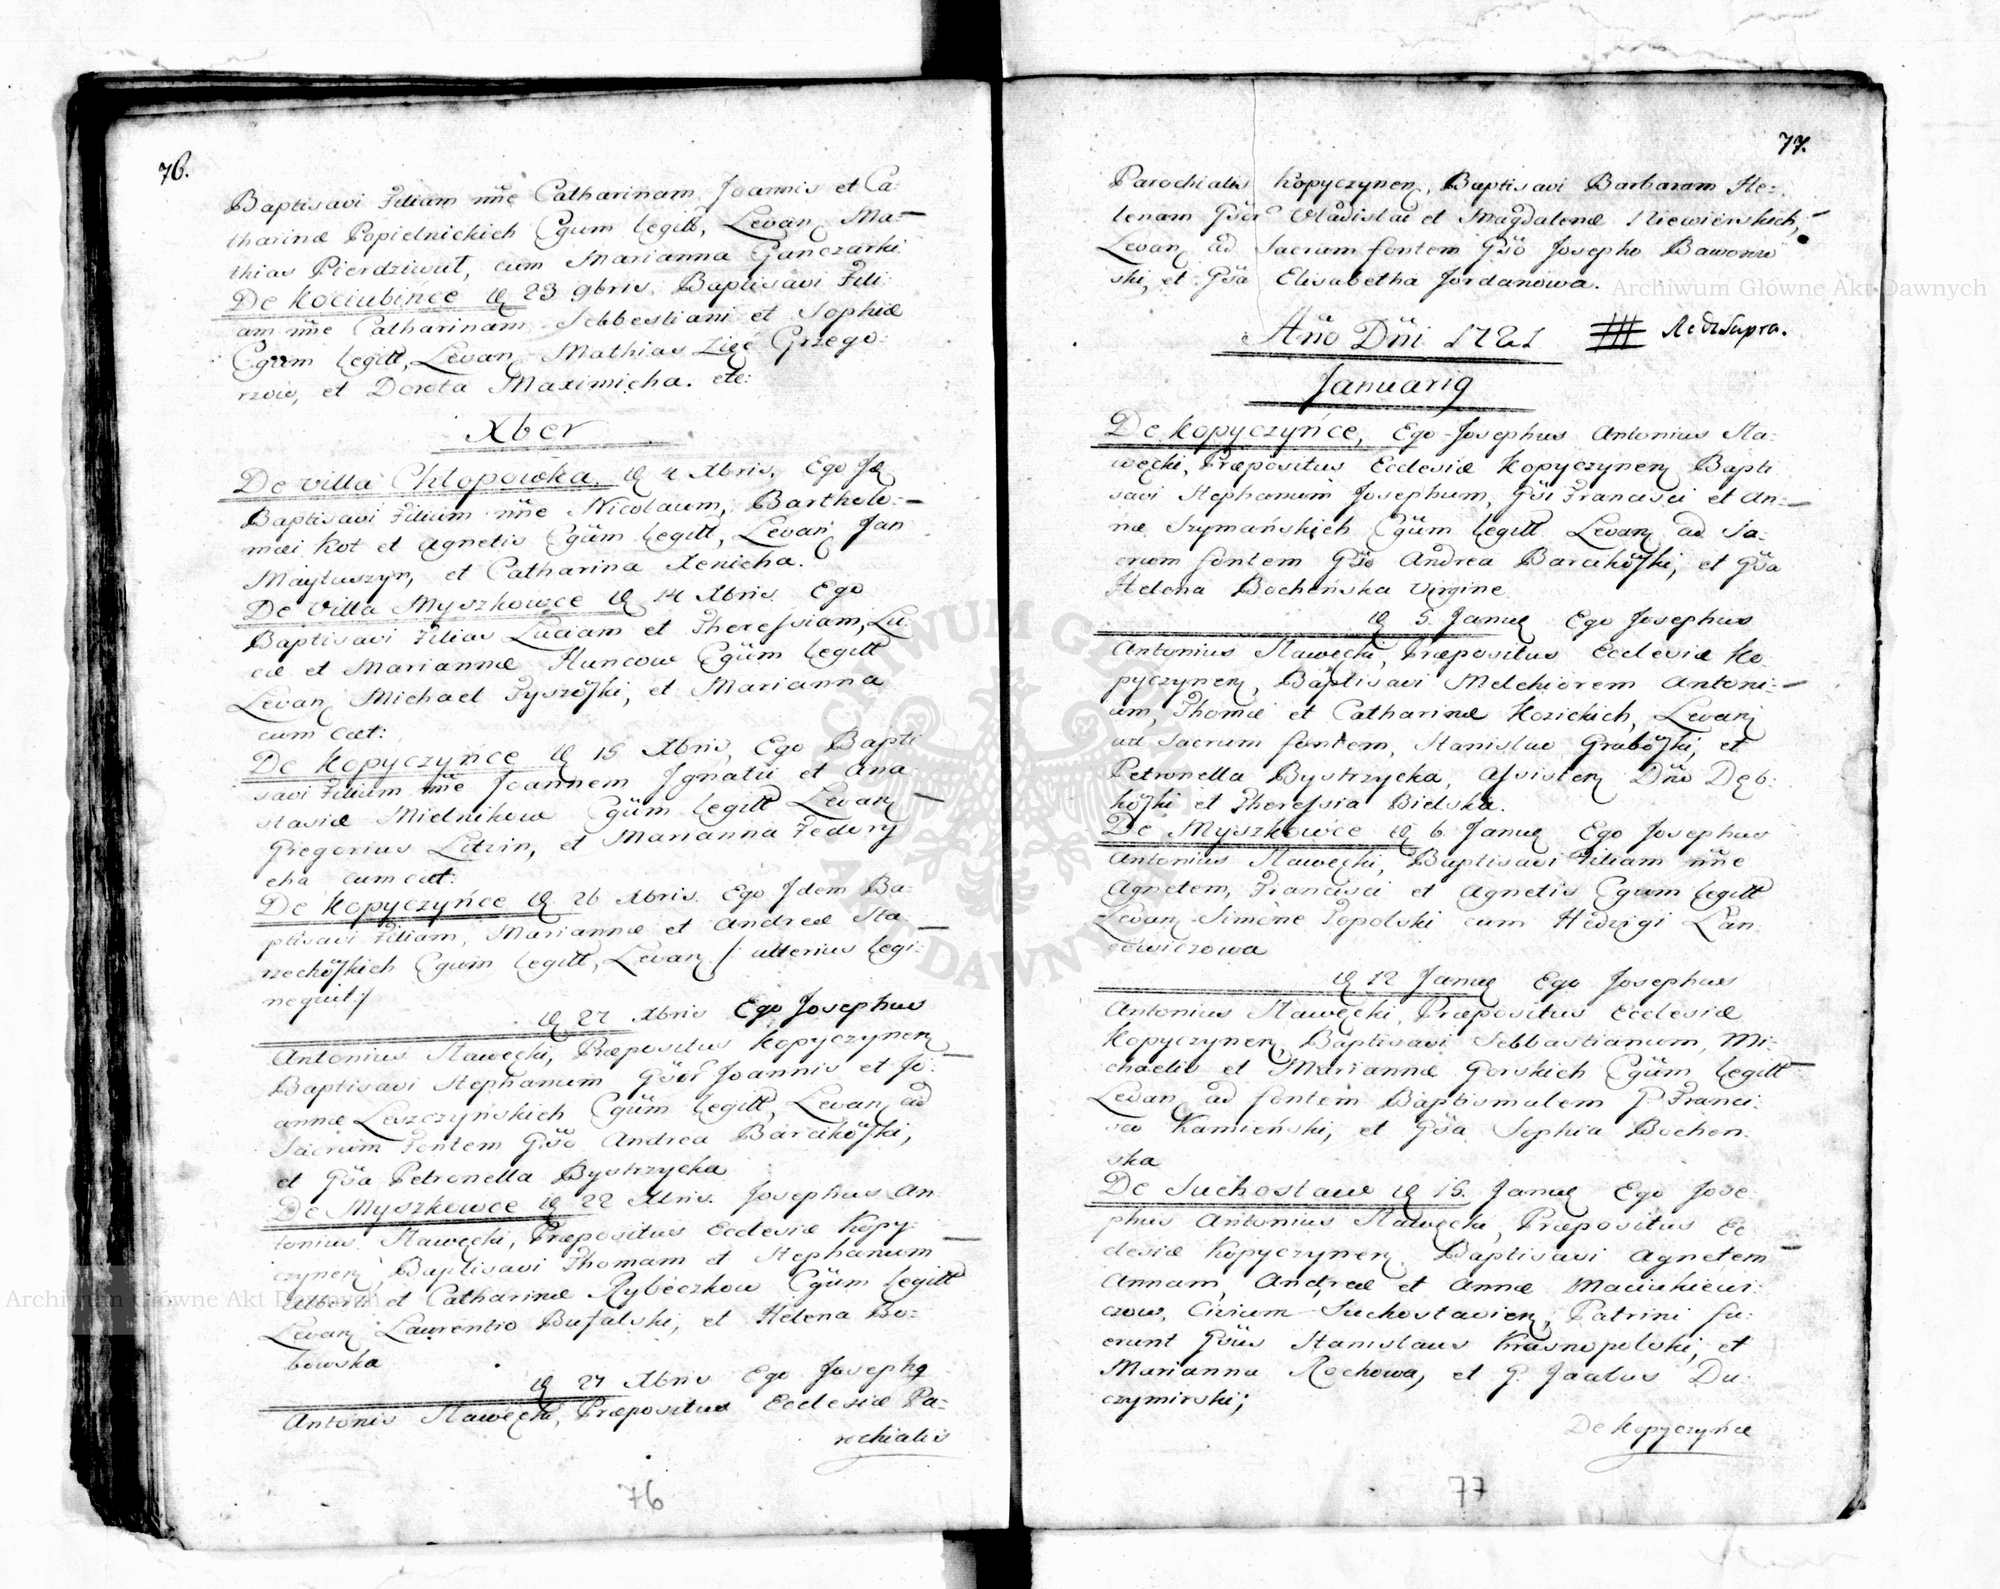 76.
Baptisavi Filiam nn̄e Catharinam Joannis et Ca:
tharinæ Popielnickich Cgum legitt, Levan Ma=
thias Pierdziwut, cum Marianna Ganczarki
De Kociubince 23 9bris. Baptisavi Fili:
am nn̄e Catharinam Sebbestiani et Sophiæ
Cgum legitt, Levan Mathias Zięć Grzego:
rzow, et Dorota Maximicha. etc:
Xber
De Villa Chłopowka 4 Xbris, Ego
Baptisavi Filium nn̄e Nicolaum, Bartholo=
mæi Kot et Agnetis Cgüm legitt, Levan Jan
Mayluszyn, et Catharina Xenicha.
De Villa Myszkowce 14 Xbris Ego
Baptisavi Filias Luciam et Theressiam, Lu:
cæ et Mariannæ Huncow Cgüm legitt
Levan Michael Tyszo̎ski, et Marianna
cum cæt:
De Kopyczyńce 15 Xbris, Ego Bapti
savi Filium nn̄e Joannem Jgnatii et Ana
stasiæ Mielnikow Cgüm legitt Levan
Gregorius Litzin, et Marianna Fedory
cha cum cæt:
De Kopyczyńce 26 Xbris. Ego Jdem Ba=
ptisavi Filiam, Mariannæ et Andreæ Sta
rzechőskich Cgum legitt, Levan /: ulterius legi:
nequit:/
27 Xbris Ego Josephus
Antonius Sławęcki, Præpositus Kopyczynen
Baptisavi Stephanum Gsor Joannis et Jo:
annæ Leszczyńskich Cgüm legitt, Levan ad
Sacrum Fontem Gso Andrea Barcikőski,
et Gsa Petronella Bystrzycka
De Myszkowce 22 Xbris. Josephus An:
tonius Sławęcki, Præpositus Ecclesiæ Kopy:
czynen, Baptisavi Thomam et Stephanum
Alberti et Catharinæ Rybeczkow Cgüm legitt
Levan Laurentio Bufalski, et Helena Bo:
bowska
27 Xbris Ego Josephq
Antonis Sławęcki, Præpositus Ecclesiæ Pa=
rochialis
76
77.
Parochialis Kopyczynen, Baptisavi Barbaram He=
lenam Gsor Vladislai et Magdalenæ Niewienskich,
Levan ad Sacrum fontem Gso Josepho Baworow
ski, et Gsa Elisabetha Jordanowa.
Año Dñi 1721 Red: Supra.
Januarig
De Kopyczyńce, Ego Josephus Antonius Sła:
węcki, Præpositus Ecclesiæ Kopyczynen Bapti
savi Stephanum Josephum, Gsi Francisci et An=
næ Szymańskich Cgüm legitt Levan ad Sa:
crum fontem Gso Andrea Barcikőski, et Gsa
Helena Bocheńska Virgine
5. Janu Ego Josephus
Antonius Sławęcki, Præpositus Ecclesiæ Ko
pyczynen, Baptisavi Melchiorem Antoni=
um, Thomæ et Catharinæ Kozickich, Levan
ad Sacrum fontem, Stanislao Grabőski, et
Petronella Bystrzycka, Assisten Dño Dęb:
kőski et Theressia Bielska.
De Myszkowce 6 Janu Ego Josephus
Antonius Sławęcki, Baptisavi Filiam nn̄e
Agnetem, Francisci et Agnetis Cgum legitt
Levan Simone Topolski cum Hedvigi Lan
cowiczowa
12 Janu Ego Josephus
Antonius Sławęcki, Præpositus Ecclesiæ
Kopyczynen, Baptisavi Sebbastianum, Mi:
chaelis et Mariannæ Gorskich Cgüm legitt
Levan ad fontem Baptismalem P Franci:
sco Kamieński, et Gsa Sophia Bochen:
ska
De Suchostaw 15. Janu Ego Jose:
phus Antonius Sławęcki, Præpositus Ec
clesiæ Kopyczynen Baptisavi Agnetem
Annam, Andreæ et Annæ Maciukiewi:
czow, Civium Suchostavien, Patrini fu:
erunt Gsüs Stanislaus Krasnopolski, et
Marianna Rochowa, et G. Jaalus Du:
czymirski;
De Kopyczyńce
77
Archiwum Główne Akt Dawnych
Archiwum Główne Akt Dawnych
ARCHIWUM GŁÓWNE AKT DAWNYCH